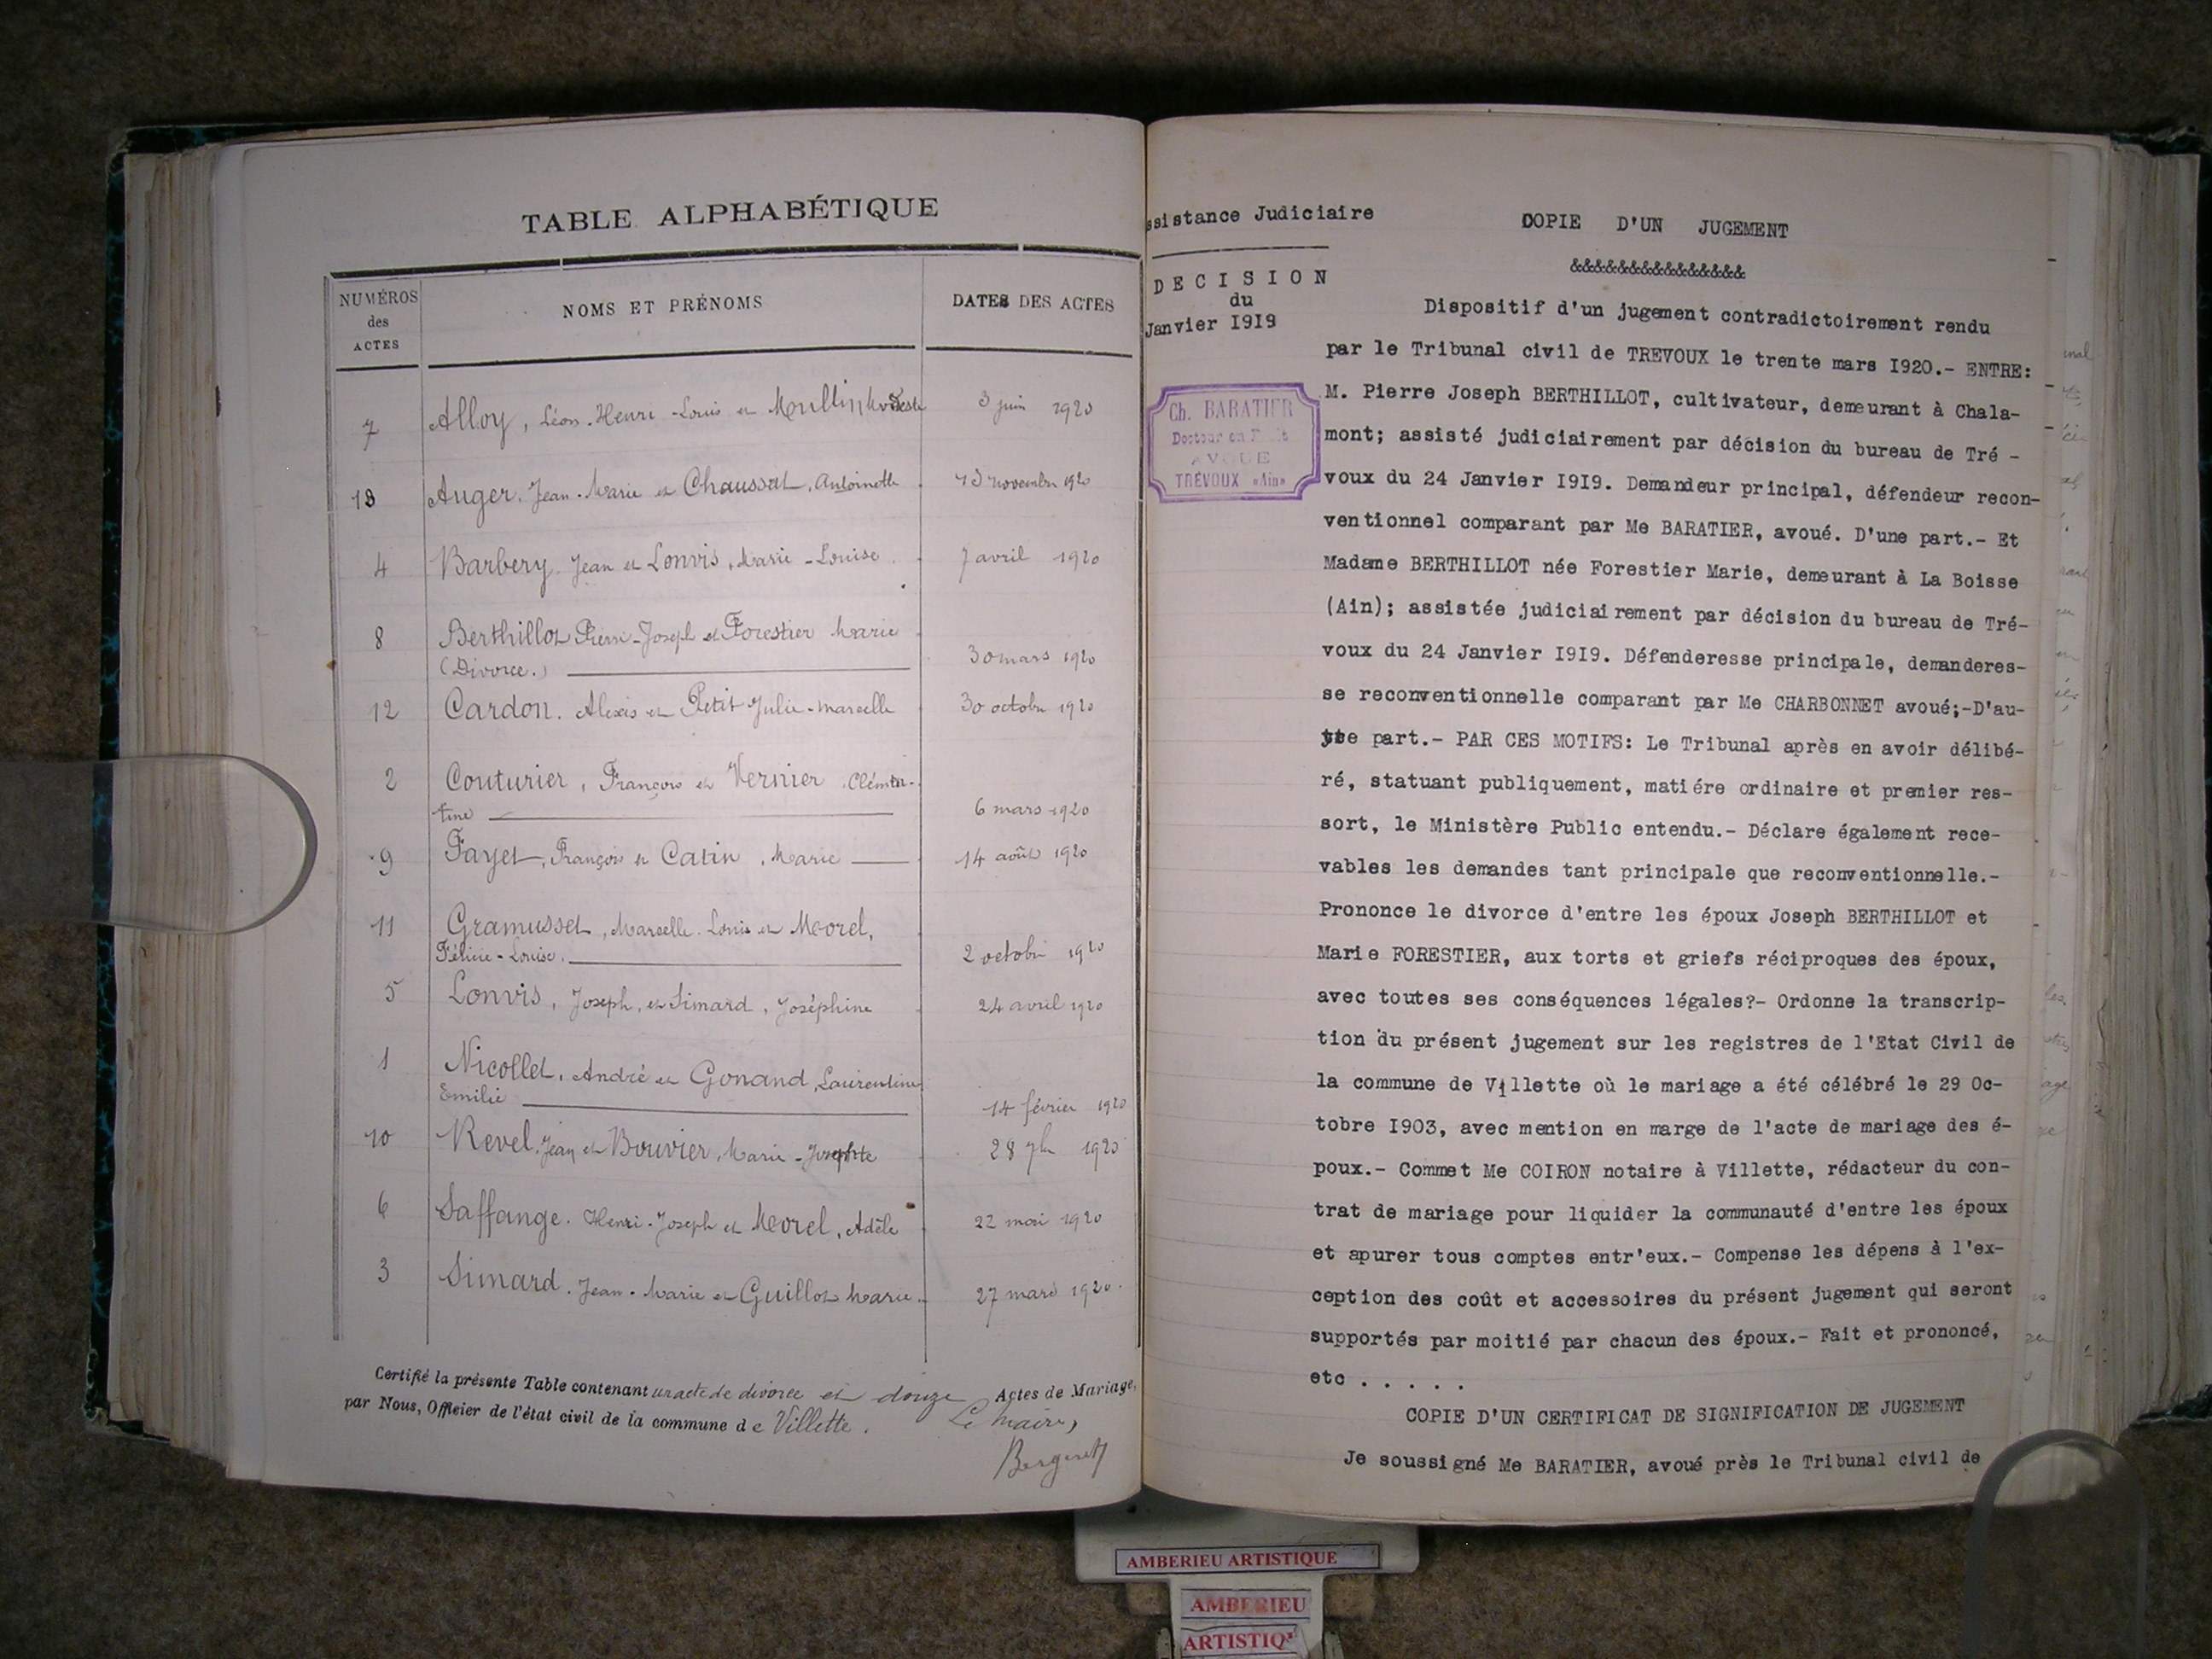 TABLE ALPHABÉTIQUE
NUMÉROS des ACTES
NOMS ET PRÉNOMS
DATES DES ACTES
7 Alloy, Léon-Henri-Louis et Mullin, Modeste 3 juin 1920
13 Auger, Jean-Marie et Chaussat, Antoinette 13 novembre 1920
4 Barbery Jean et Lonvis, Marie-Louise 7 avril 1920
8 Berthillot Pierre-Joseph et Forestier Marie
(Divorce.) 30 mars 1920
12 Cardon. Alexis et Petit Julie-Marcelle 30 octobre 1920
2 Couturier, François et Vernier Clémen-
tine 6 mars 1920
9 Fayet, François et Catin, Marie 14 août 1920
11 Gramusset, Marcelle Louis et Morel,
Félicie-Louise. 2 octobre 1920
5 Lonvis, Joseph, et Simard, Joséphine 24 avril 1920
1 Nicollet, André et Gonand, Laurentine
Emilie 14 février 1920
10 Revel, Jean et Bouvier, Marie-Josephte 28 7bre 1920
6 Saffange. Henri-Joseph et Morel, Adèle 22 mai 1920
3 Simard. Jean-Marie et Guillot Marie 27 mars 1920
Certifié la présente Table contenant un acte de divorce et douze Actes de Mariage,
par Nous, Officier de l'état civil de la commune de Villette.
Le Maire,
Bergeret
ssistance Judiciaire
DECISION
du
Janvier 1919
Ch. BARATIER
Docteur en
AVOUE
TRÉVOUX (Ain)
COPIE D'UN JUGEMENT
&&&&&&&&&&&&&&&
Dispositif d'un jugement contradictoirement rendu
par le Tribunal civil de TREVOUX le trente mars I920.- ENTRE:
M. Pierre Joseph BERTHILLOT, cultivateur, demeurant à Chala-
mont; assisté judiciairement par décision du bureau de Tré -
voux du 24 Janvier I9I9. Demandeur principal, défendeur recon-
ventionnel comparant par Me BARATIER, avoué. D'une part.- Et
Madame BERTHILLOT née Forestier Marie, demeurant à La Boisse
(Ain); assistée judiciairement par décision du bureau de Tré-
voux du 24 Janvier I9I9. Défenderesse principale, demanderes-
se reconventionnelle comparant par Me CHARBONNET avoué;-D'au-
tre part.- PAR CES MOTIFS: Le Tribunal après en avoir délibé-
ré, statuant publiquement, matiére ordinaire et premier res-
sort, le Ministère Public entendu.- Déclare également rece-
vables les demandes tant principale que reconventionnelle.-
Prononce le divorce d'entre les époux Joseph BERTHILLOT et
Marie FORESTIER, aux torts et griefs réciproques des époux,
avec toutes ses conséquences légales?- Ordonne la transcrip-
tion du présent jugement sur les registres de l'Etat Civil de
la commune de Villette où le mariage a été célébré le 29 Oc-
tobre I903, avec mention en marge de l'acte de mariage des é-
poux.- Commet Me COIRON notaire à Villette, rédacteur du con-
trat de mariage pour liquider la communauté d'entre les époux
et apurer tous comptes entr'eux.- Compense les dépens à l'ex-
ception des coût et accessoires du présent jugement qui seront
supportés par moitié par chacun des époux.- Fait et prononcé,
etc . . . . .
COPIE D'UN CERTIFICAT DE SIGNIFICATION DE JUGEMENT
Je soussigné Me BARATIER, avoué près le Tribunal civil de
AMBERIEU ARTISTIQUE
AMBERIEU
ARTISTIQ